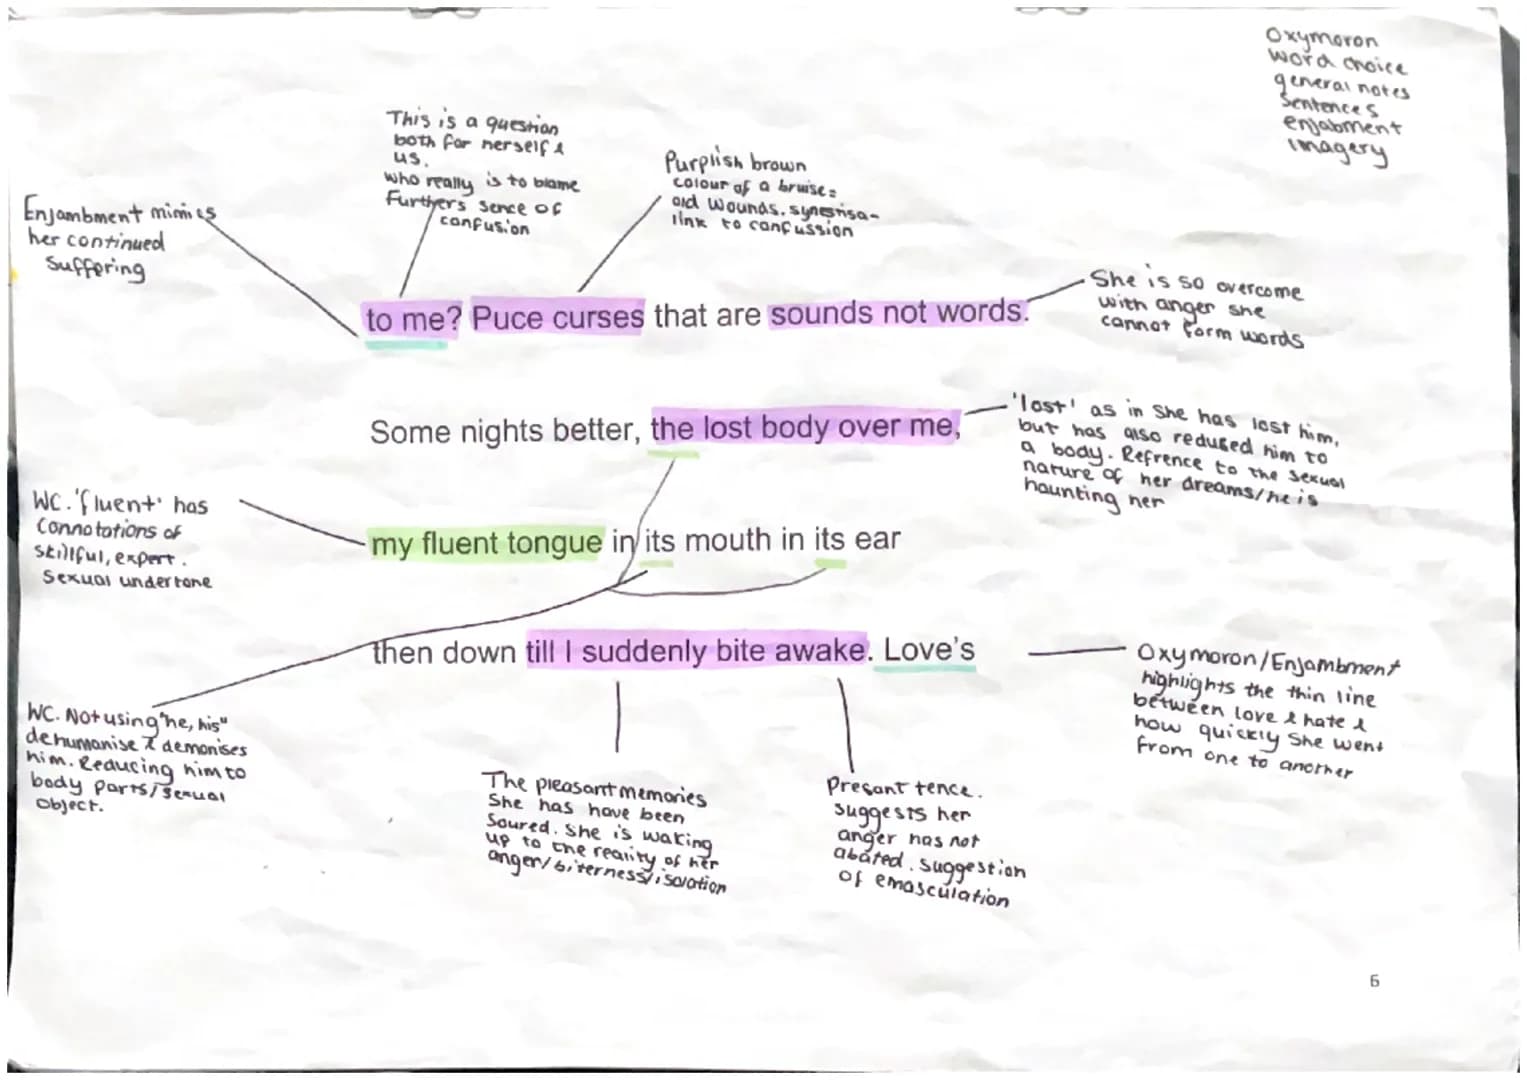 Oxymoron
word choice
general notes
Sentences
enjabment
imagery
This is a question
both for herself &
us.
who really is to blame
Furthers sence of
confusion
Purplish brown
colour of a bruise =
old wounds. synestisa-
link to confussion
Enjambment mimics
her continued
suffering
She is so overcome
with anger she
cannot form words
to me? Puce curses that are sounds not words.
'lost' as in she has lost him,
but has also redused him to
a body. Refrence to the sexual
nature of her dreams/he is
haunting her
Some nights better, the lost body over me,
WC. 'fluent' has
connotations of
skillful, expert.
Sexual undertone
my fluent tongue in its mouth in its ear
then down till I suddenly bite awake. Love's
Oxymoron/Enjambment
highlights the thin line
between love & hate &
how quickly she went
from one to another
WC. Not using "he, his"
dehumanise & demonises
him. Reducing him to
body parts/sexual
object.
The pleasant memories
she has have been
soured. She is waking
up to the reality of her
anger/biterness/isolation
Presant tence.
suggests her
anger has not
abated. suggestion
of emasculation
6